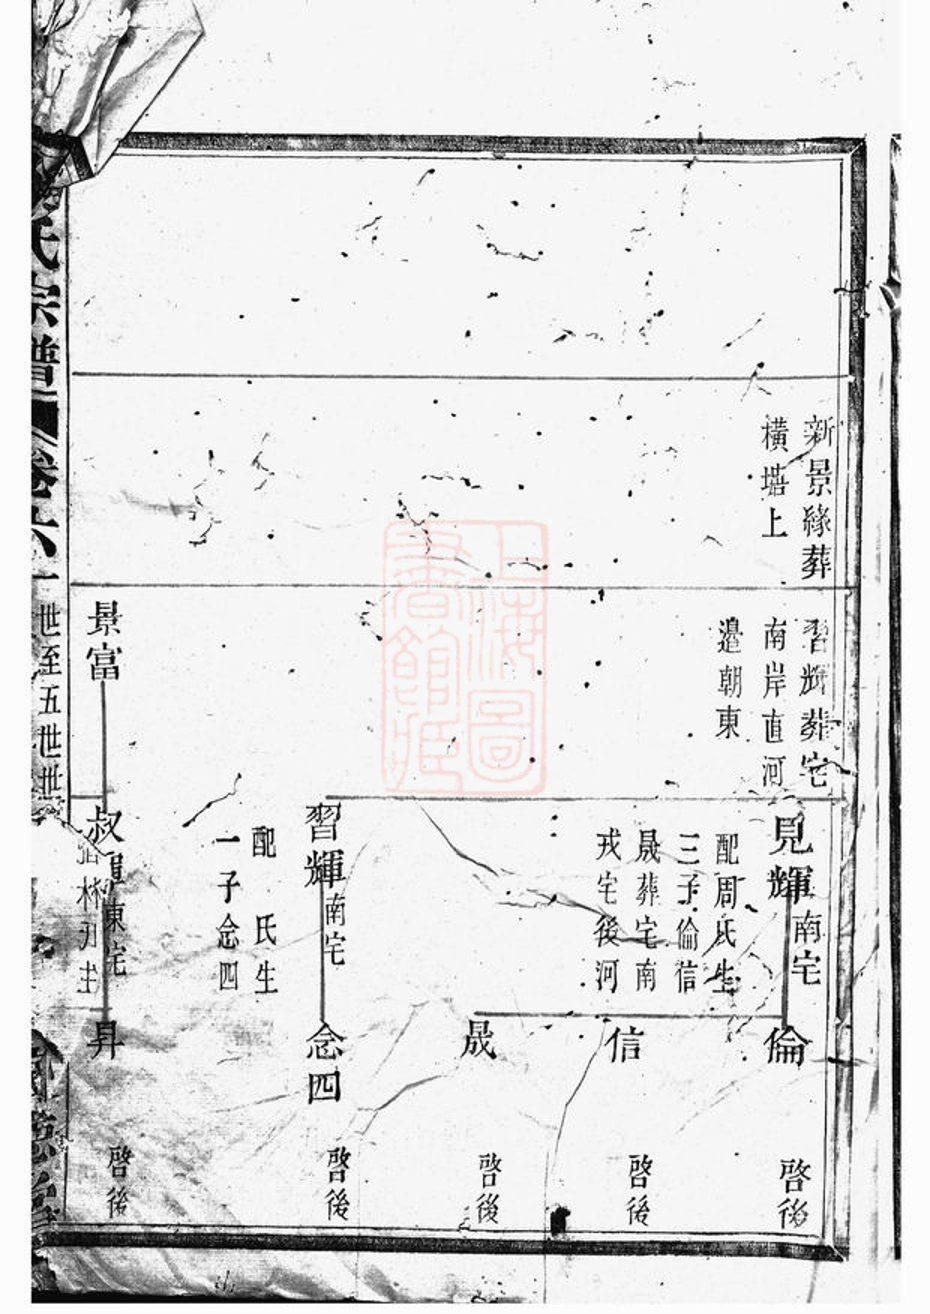 新景緣葬
橫塘上
習輝葬宅
南岸直河
邉朝東
見輝
南宅
配周氏生
三子倫信
晟葬宅南
戎宅後河
習輝
南宅
配 氏生
一子念四
景富
叔輝
東宅
倫
信
晟
念四
昇
啓後
啓後
啓後
啓後
啓後
氏宗譜
卷六
一世至五世世
上海圖
書館藏